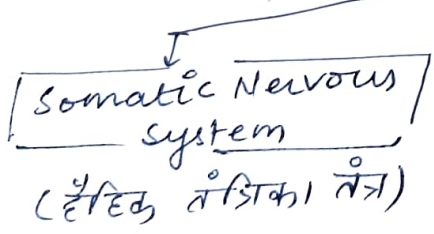 Somatic Nervous
System
(दैहिक तंत्रिका तंत्र)